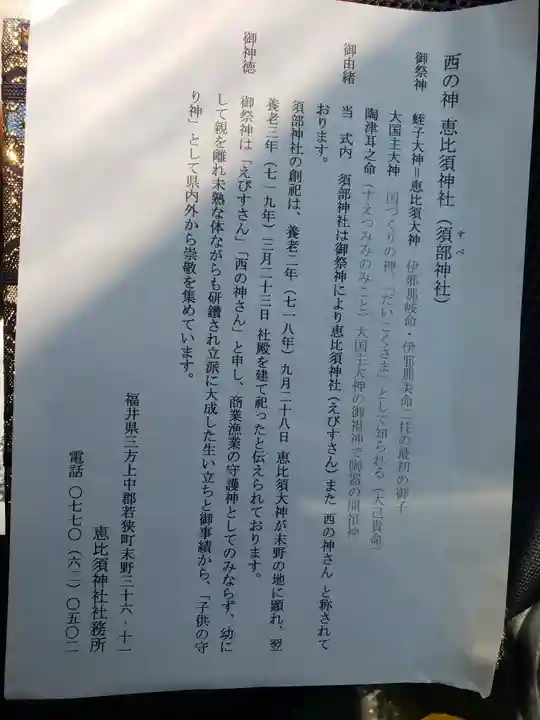 西の神 恵比須神社（須部神社）
すべ
御祭神 蛭子大神＝恵比須大神 伊邪那岐命・伊邪那美命二柱の最初の御子
大国主大神 国つくりの神。「だいこくさま」として知られる（大己貴命）
陶津耳之命（すえつみみのみこと） 大国主大神の御祖神で陶器の開祖神
御由緒 当 式内 須部神社は御祭神により恵比須神社（えびすさん）また 西の神さん と称されて
おります。
須部神社の創祀は、養老二年（七一八年）九月二十八日 恵比須大神が末野の地に顕れ、翌
養老三年（七一九年）三月二十三日 社殿を建て祀ったと伝えられております。
御神徳 御祭神は「えびすさん」「西の神さん」と申し、商業漁業の守護神としてのみならず、幼に
して親を離れ未熟な体ながらも研鑽され立派に大成した生い立ちと御事績から、「子供の守
り神」として県内外から崇敬を集めています。
福井県三方上中郡若狭町末野三十六‐十一
恵比須神社社務所
電話 〇七七〇（六二）〇五〇二